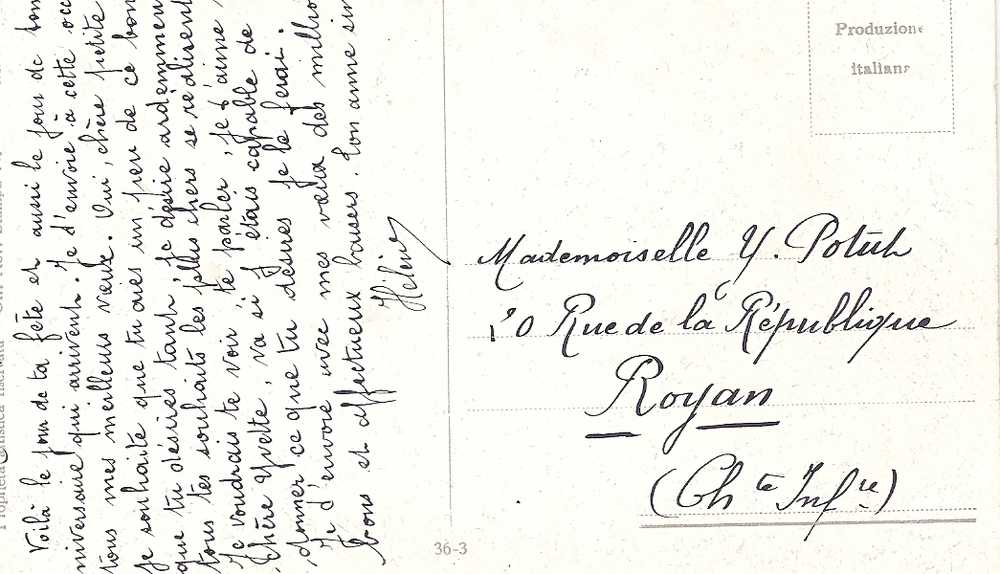 Voilà le jour de ta fête et aussi le jour de ton
niversaire qui arrivent. Je t'envoie à cette occ
tous mes meilleurs vœux. Oui, chère petite
je souhaite que tu aies un peu de ce bon
que tu désires tant, je désire ardemment
tous tes souhaits les plus chers se réalisent
Je voudrais te voir, te parler, je t'aime
Chère Yvette, va si j'étais capable de
donner ce que tu désires je le ferai.
Je t'envoie avec mes vœux des million
bons et affectueux baisers. Ton amie sin
Hélène
Produzione
italiana
Mademoiselle Y.
Rue de la République
Royan
(Chte Infre)
36-3